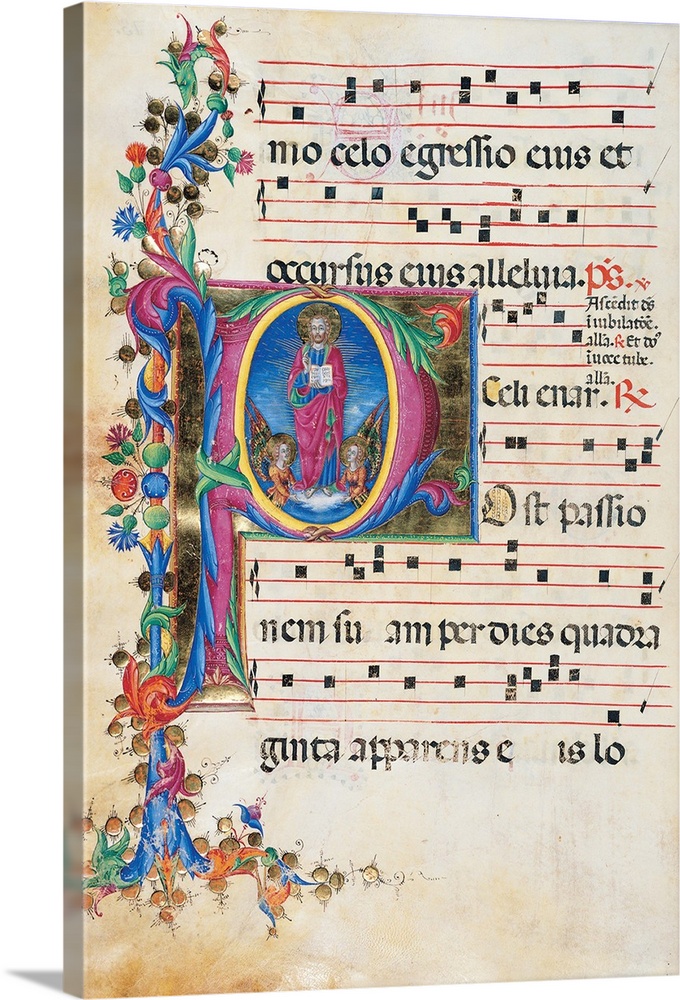 mo celo egressio eius et
occursus eius alleluia. ps.
Ascendit ds
in iubilatõe.
alla. R Et dõs
in uoce tube.
alla.
Celi enar. R
Ost passio
nem su am per dies quadra
ginta apparens e is lo